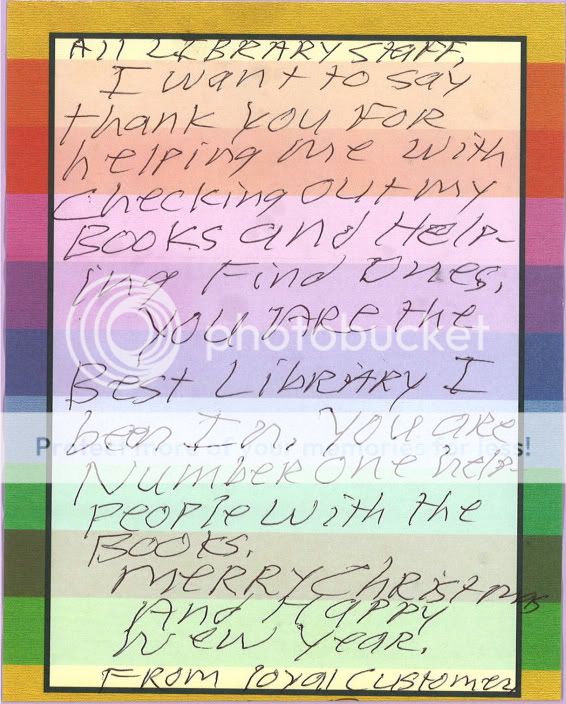 All LIBRARY STAFF,
I want to say
thank you FOR
helping me with
Checking out my
BOOKS and Help-
ing Find Ones.
YOU ARE the
photobucket
Best LiBRARY I
been In. You are
Protect more of your memories for less!
Number One help
people with the
BOOKS.
MERRY Christmas
And Happy
New Year.
FROM loyal Customer